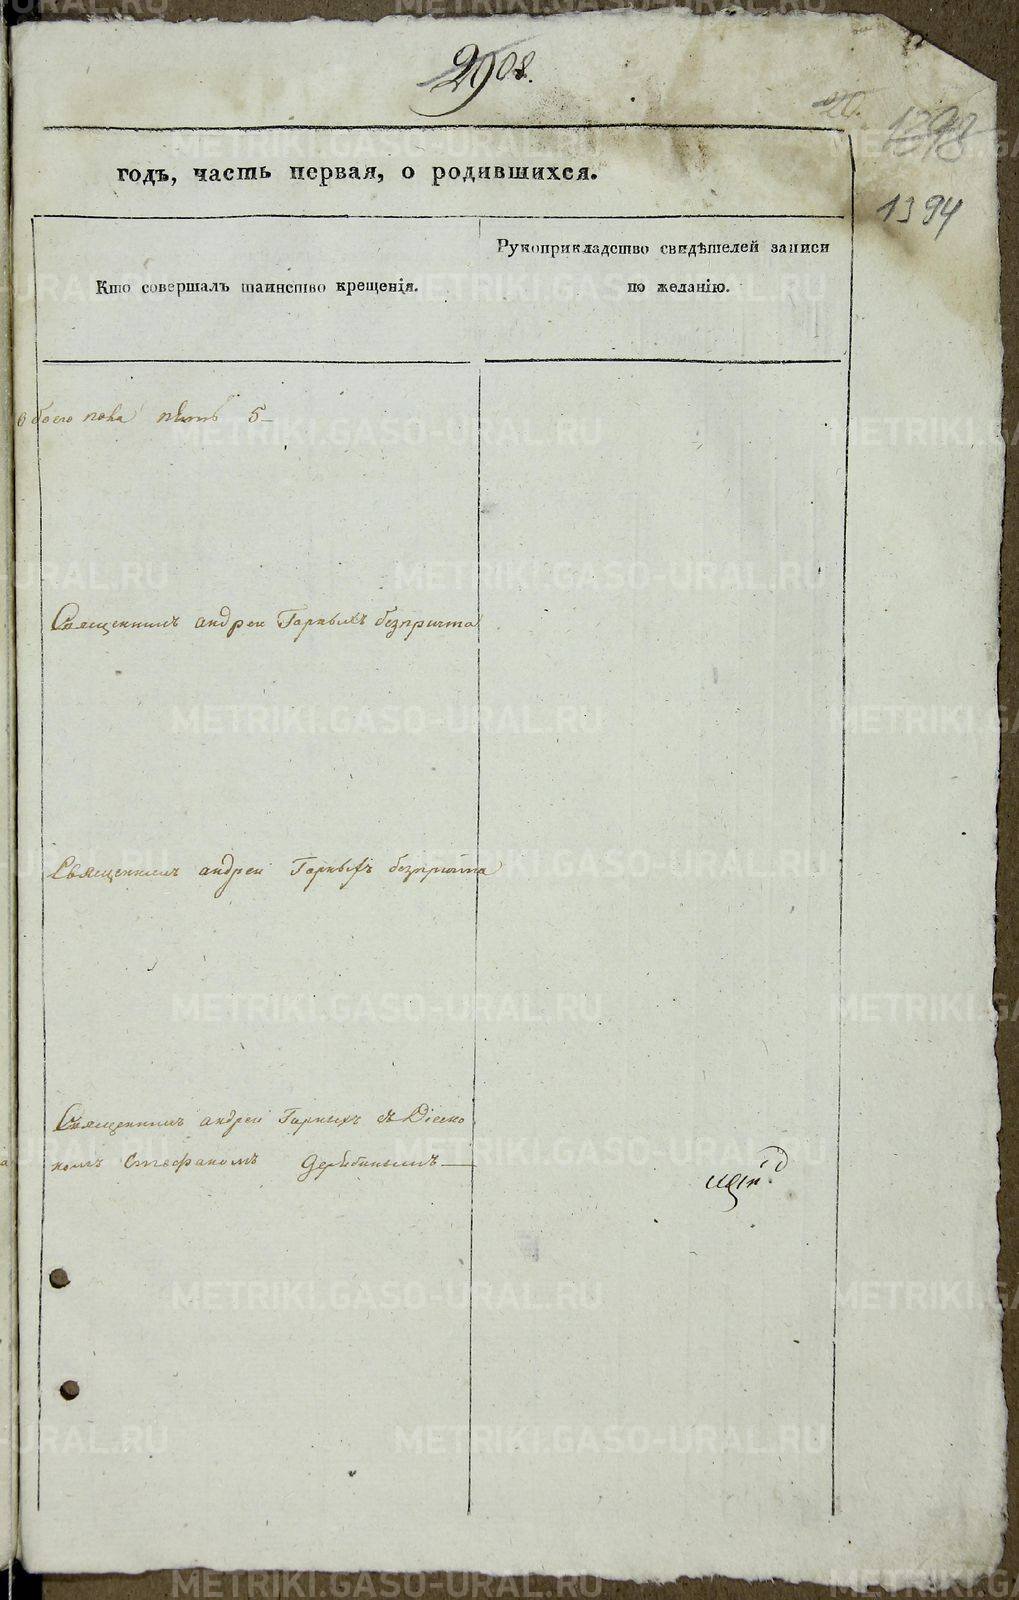 2908.
20.
1394
годъ, часть первая, о родившихся.
Кто совершалъ таинство крещенія.
Рукоприкладство свидѣтелей записи
по желанію.
обоего пола пять 5
Священникъ андреи Горныхъ безпричта
Священникъ андреи Горныхъ безпричта
Священникъ андреи Горныхъ съ Діако
номъ Стефаномъ Дерябинымъ
METRIKI.GASO-URAL.RU